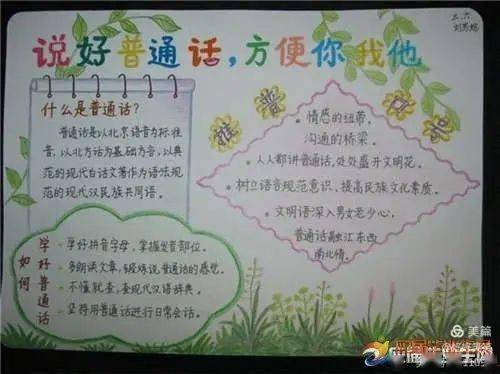 五.六
说好普通话，方便你我他
什么是普通话？
普通话是以北京语音为标准
音，以北方话为基础方言，以典
范的现代白话文著作为语法规
范的现代汉民族共同语。
推普口号
情感的纽带，
沟通的桥梁。
人人都讲普通话，处处盛开文明花。
树立语言规范意识，提高民族文化素质。
文明语深入男女老少心，
普通话融汇东西
南北情。
如何学好普通话
学好拼音字母，掌握发音部位。
多朗读文章，锻炼说普通话的感觉。
不懂就查，查现代汉语辞典。
坚持用普通话进行日常会话。
美篇